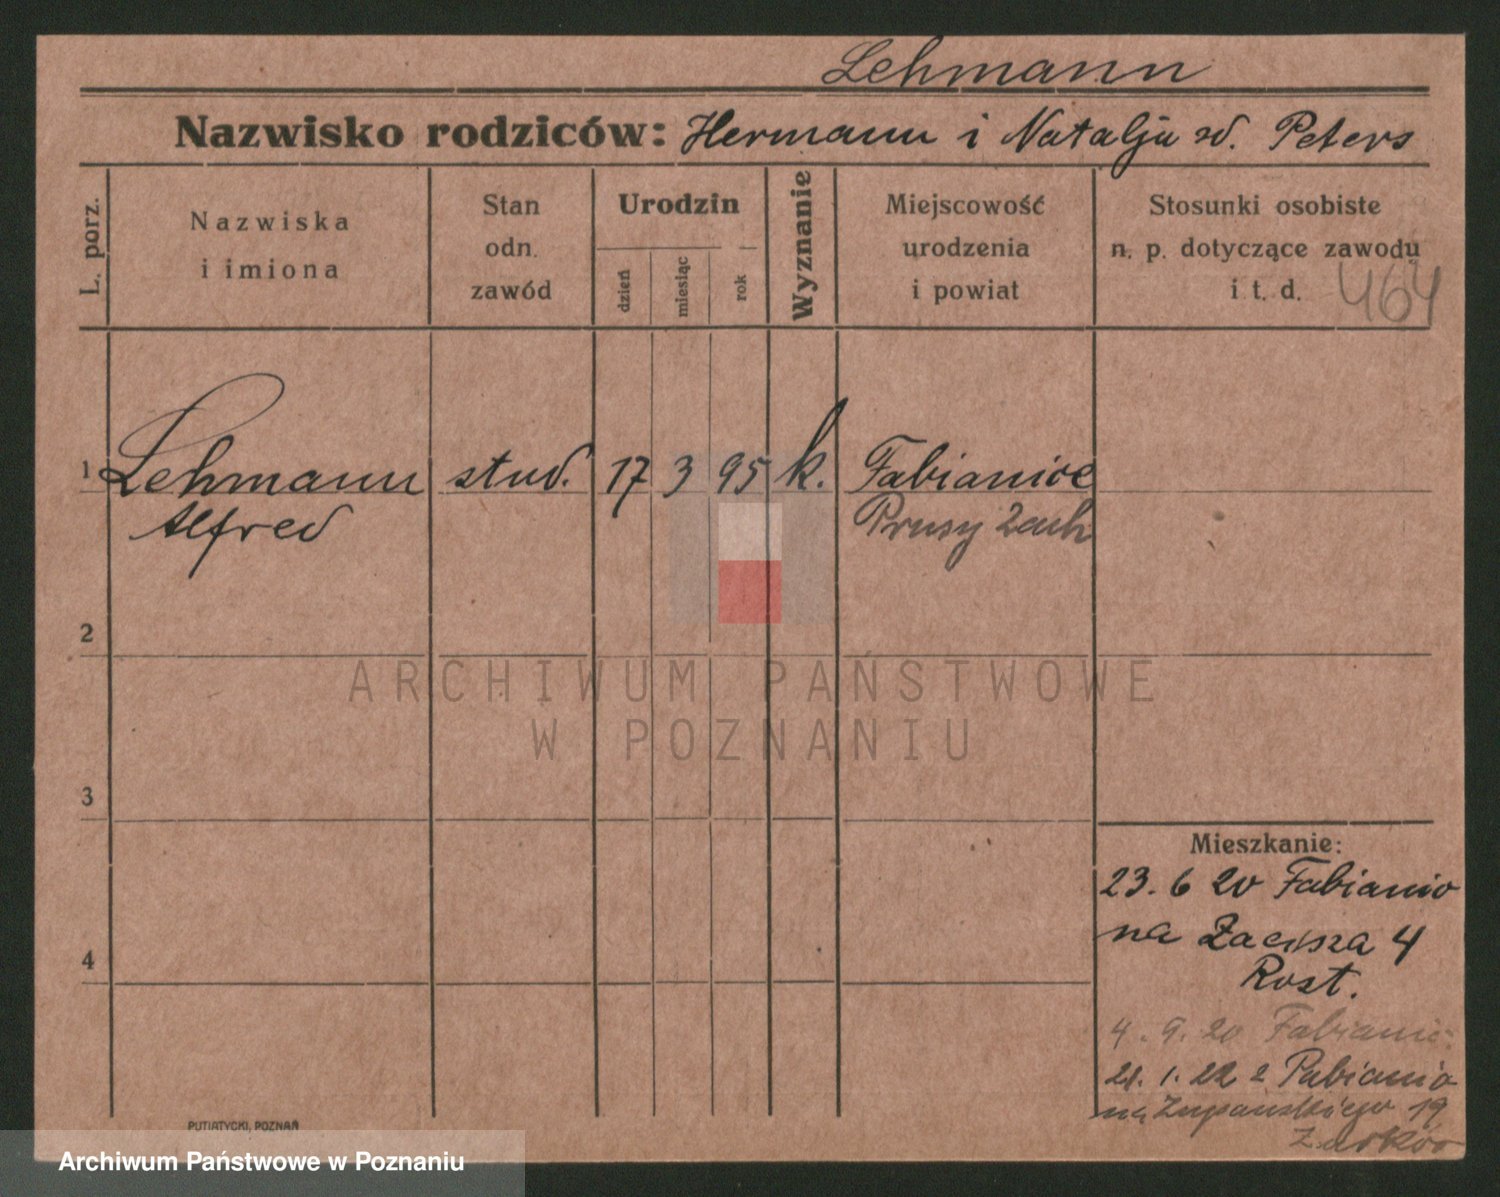 Lehmann
Nazwisko rodziców: Hermann i Natalja Peters
L. porz.
Nazwiska
i imiona
Stan
odn.
zawód
Urodzin
dzień
miesiąc
rok
Wyznanie
Miejscowość
urodzenia
i powiat
Stosunki osobiste
n. p. dotyczące zawodu
i t. d.
464
1 Lehmann stud. 17 3 95 k. Fabianice
Alfred Prusy Zach
2
ARCHIWUM PAŃSTWOWE
W POZNANIU
3
Mieszkanie:
23. 6 20 Fabianic
na Zacisza 4
4
Rost.
4. 9. 20 Fabianic.
21. 1. 22 z Pabianic
na Żupańskiego 19
PUTIATYCKI, POZNAŃ
Archiwum Państwowe w Poznaniu